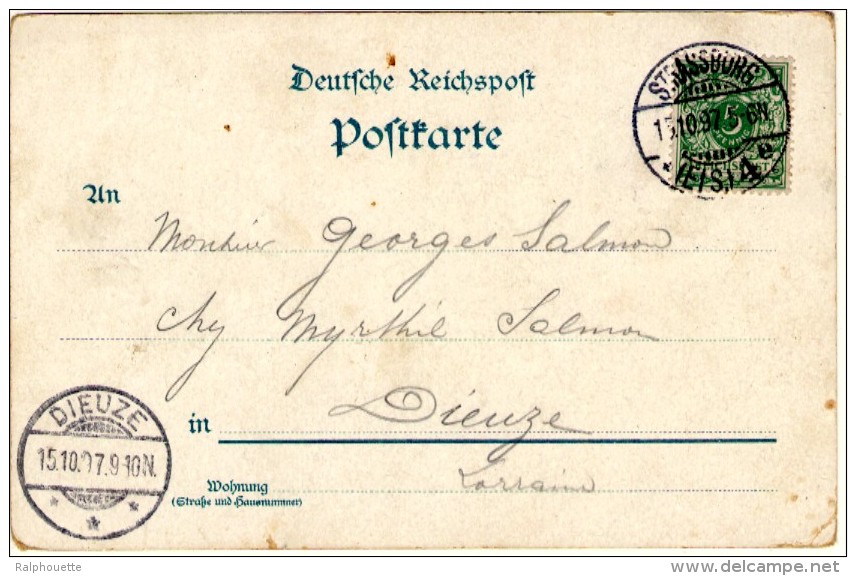 Deutsche Reichspost
Postkarte
STRASSBURG
15.10.97.5-6N.
* (ELS.) 4 e
An
Monsieur Georges Salmon
Chez Myrthil Salmon
in Dieuze
Lorraine
Wohnung
(Straße und Hausnummer)
DIEUZE
15.10.97.9-10N.
Ralphouette
www.delcampe.net